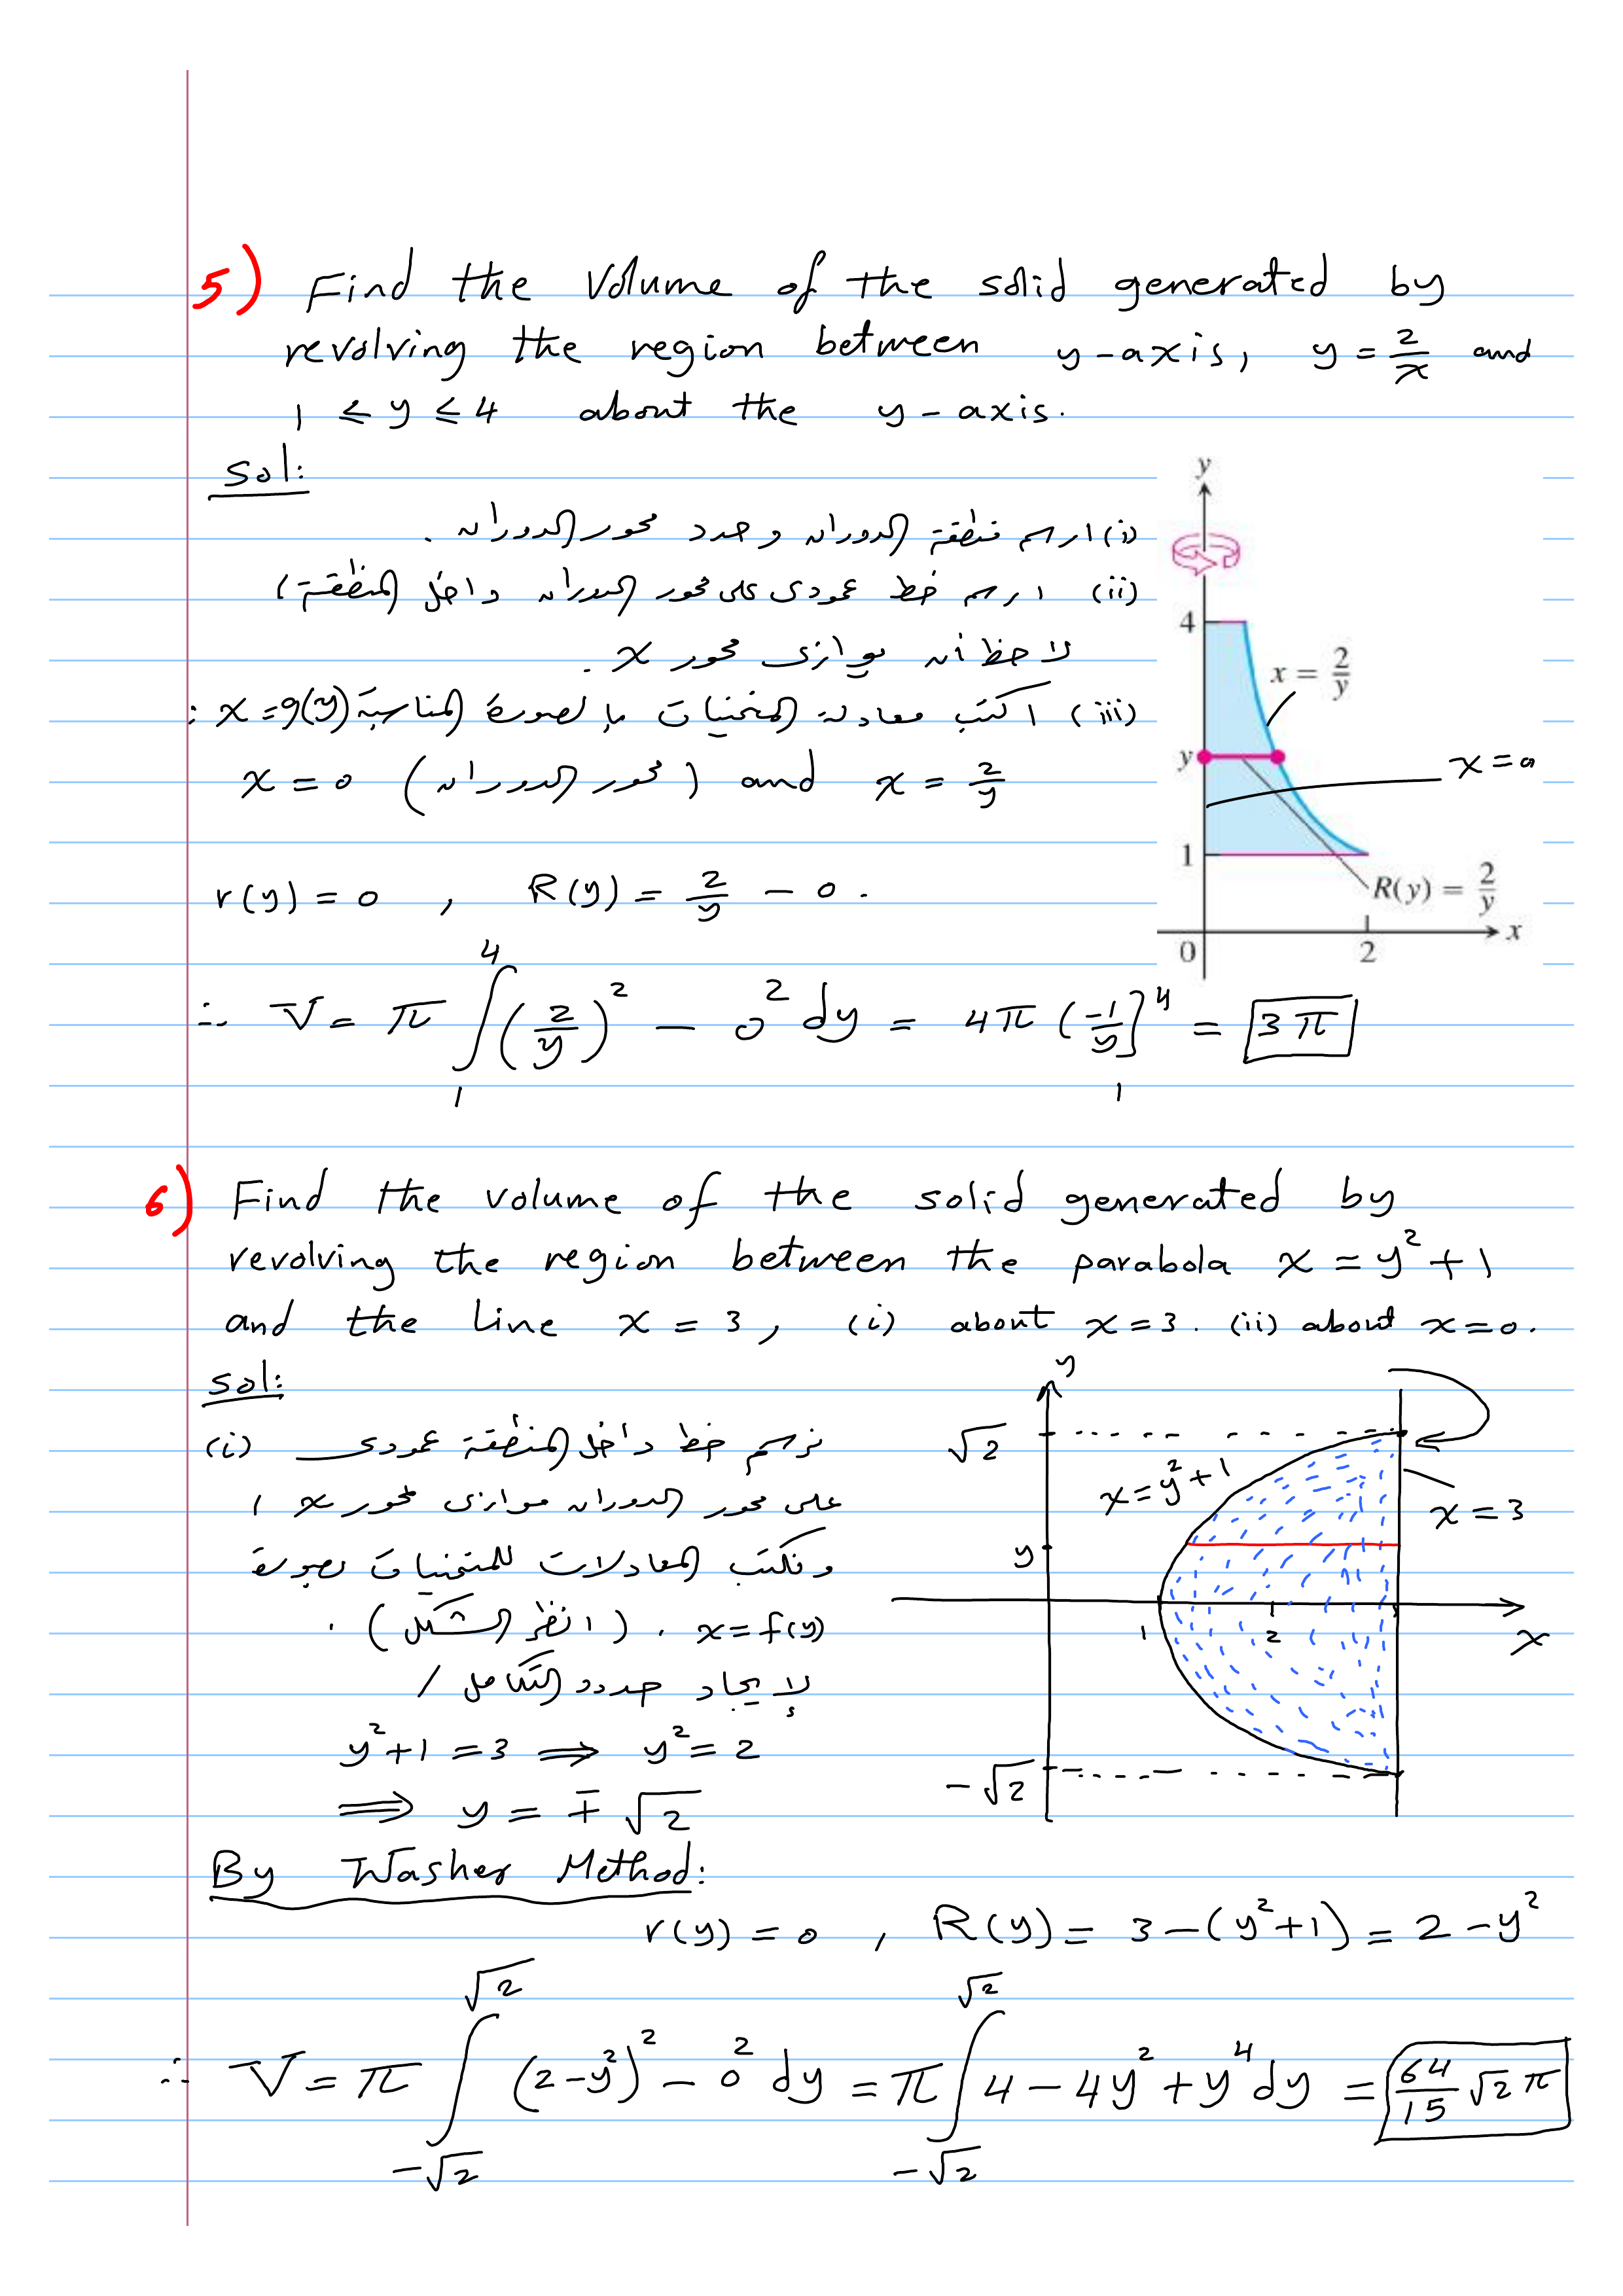 5) Find the Volume of the solid generated by
revolving the region between y-axis, y = 2/x and
1 ≤ y ≤ 4 about the y-axis.
sol:
(i) ارسم منطقة الدوران وحدد محور الدوران .
(ii) ارسم خط عمودى على محور الدوران داخل المنطقة،
لاحظ أن يوازى محور x .
(iii) اكتب معادلة المنحنيات بالصورة المناسبة x=g(y) :
x = 0 (محور الدوران) and x = 2/y
r(y) = 0 , R(y) = 2/y - 0 .
∴ V = π ∫_1^4 (2/y)^2 - 0^2 dy = 4π (-1/y]_1^4 = 3π
y
4
x = 2/y
y
x = 0
1
R(y) = 2/y
0
2
x
6) Find the volume of the solid generated by
revolving the region between the parabola x = y^2 + 1
and the Line x = 3, (i) about x = 3. (ii) about x = 0.
sol:
(i) نرسم خط داخل المنطقة عمودى
على محور الدوران موازى لمحور x ،
ونكتب المعادلات للمنحنيات بصورة
x = f(y) . (انظر الشكل) .
لإيجاد حدود التكامل /
y^2 + 1 = 3 ⟹ y^2 = 2
⟹ y = ∓ √2
y
√2
x = y^2 + 1
x = 3
y
1
2
x
-√2
By Washer Method:
r(y) = 0 , R(y) = 3 - (y^2 + 1) = 2 - y^2
∴ V = π ∫_{-√2}^{√2} (2 - y^2)^2 - 0^2 dy = π ∫_{-√2}^{√2} 4 - 4y^2 + y^4 dy = 64/15 √2 π